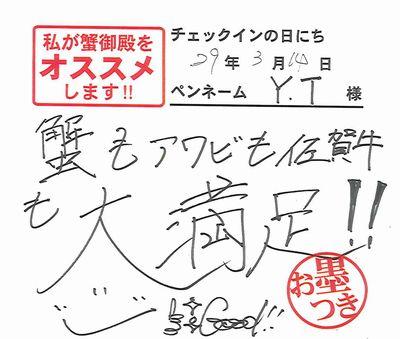 私が蟹御殿を
オススメ
します!!
チェックインの日にち
29年3月14日
ペンネーム Y.T 様
蟹もアワビも佐賀牛
も大満足!!
Good!!
お墨つき